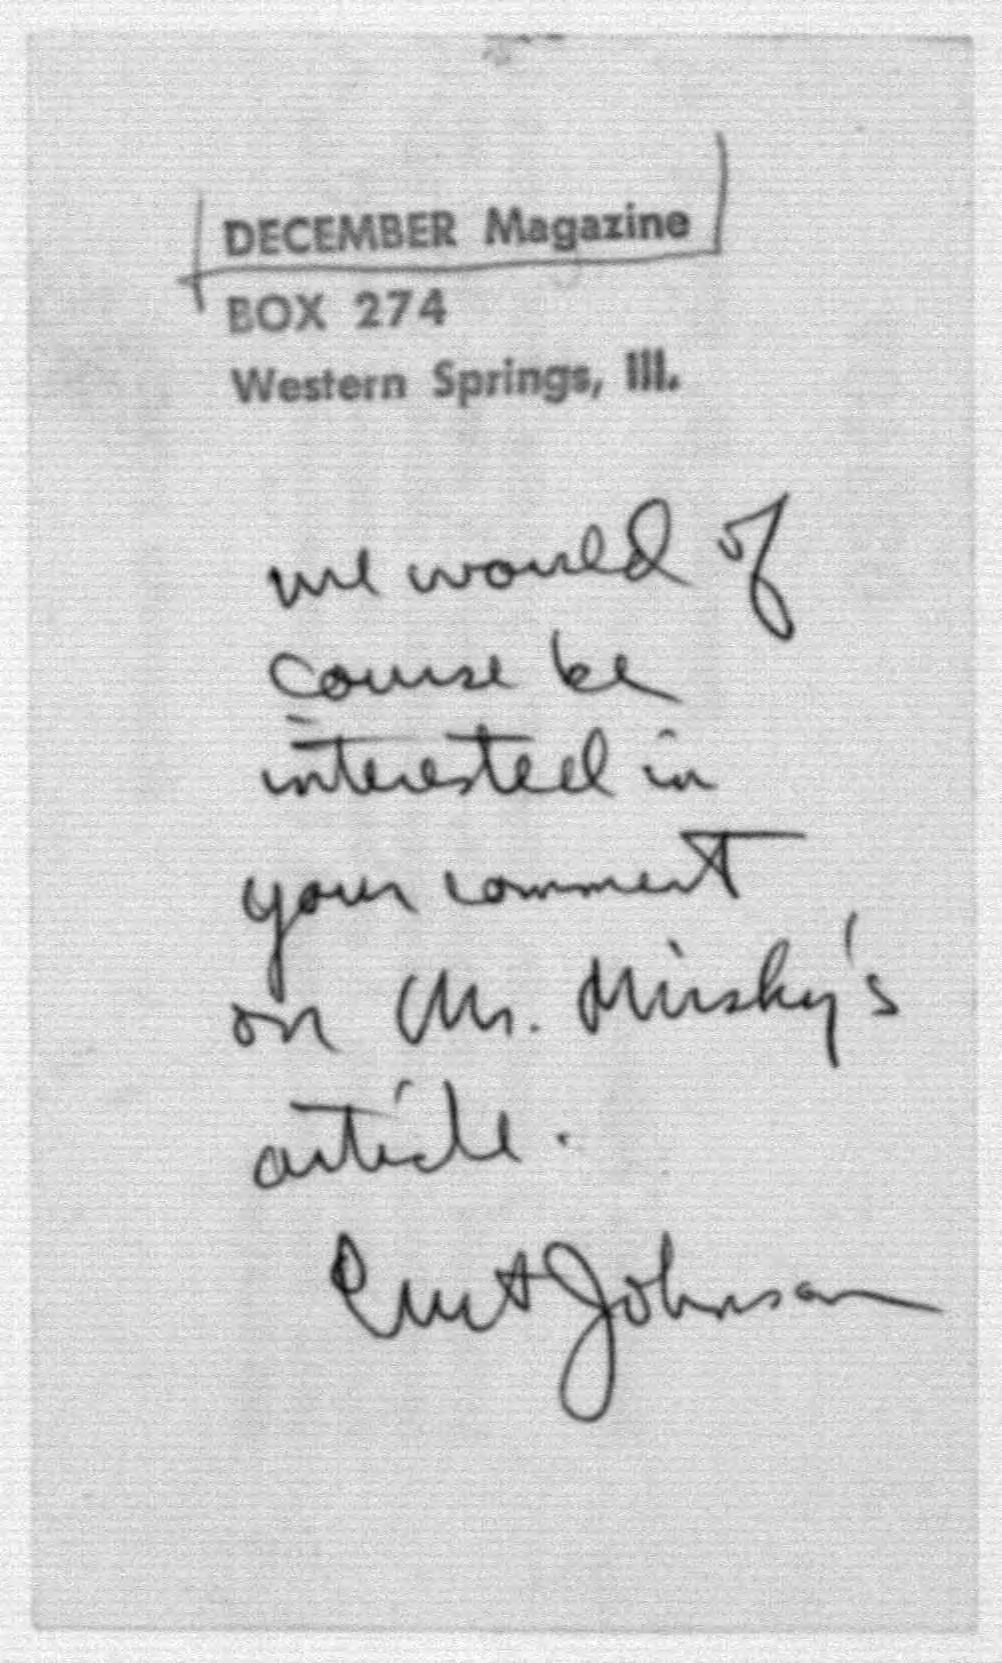 DECEMBER Magazine
BOX 274
Western Springs, Ill.
we would of
course be
interested in
your comment
on Mr. Mirsky's
article.
Curt Johnson